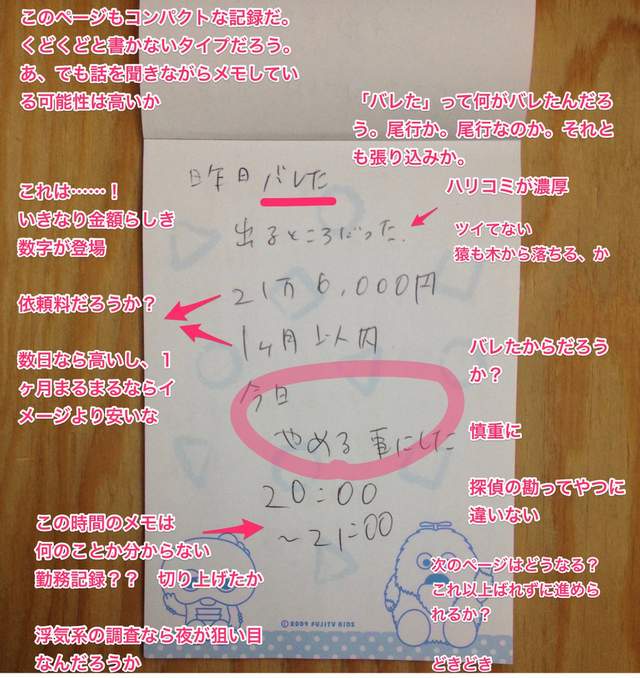 このページもコンパクトな記録だ。
くどくどと書かないタイプだろう。
あ、でも話を聞きながらメモしてい
る可能性は高いか
「バレた」って何がバレたんだろ
う。尾行か。尾行なのか。それと
も張り込みか。
昨日バレた
ハリコミが濃厚
これは……！
いきなり金額らしき
数字が登場
出るところだった.
ツイてない
猿も木から落ちる、か
依頼料だろうか？
21万6,000円
1ヶ月以内.
数日なら高いし、１
ヶ月まるまるならイ
メージより安いな
バレたからだろう
か？
今日
やめる事にした
慎重に
20:00
～21:00
探偵の勘ってやつに
違いない
この時間のメモは
何のことか分からない
勤務記録？？　切り上げたか
次のページはどうなる？
これ以上ばれずに進めら
れるか？
© 2009 FUJITV KIDS
浮気系の調査なら夜が狙い目
なんだろうか
どきどき